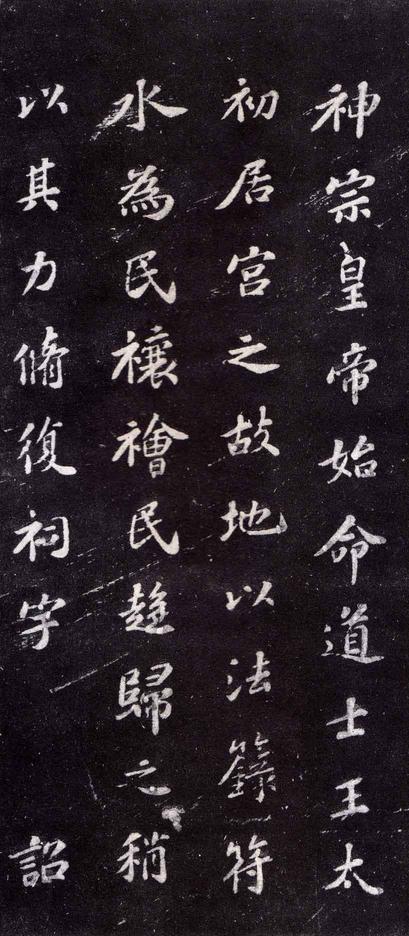 神宗皇帝始命道士王太
初居宫之故地以法籙符
水為民禳禬民趍歸之稍
以其力脩復祠宇　詔